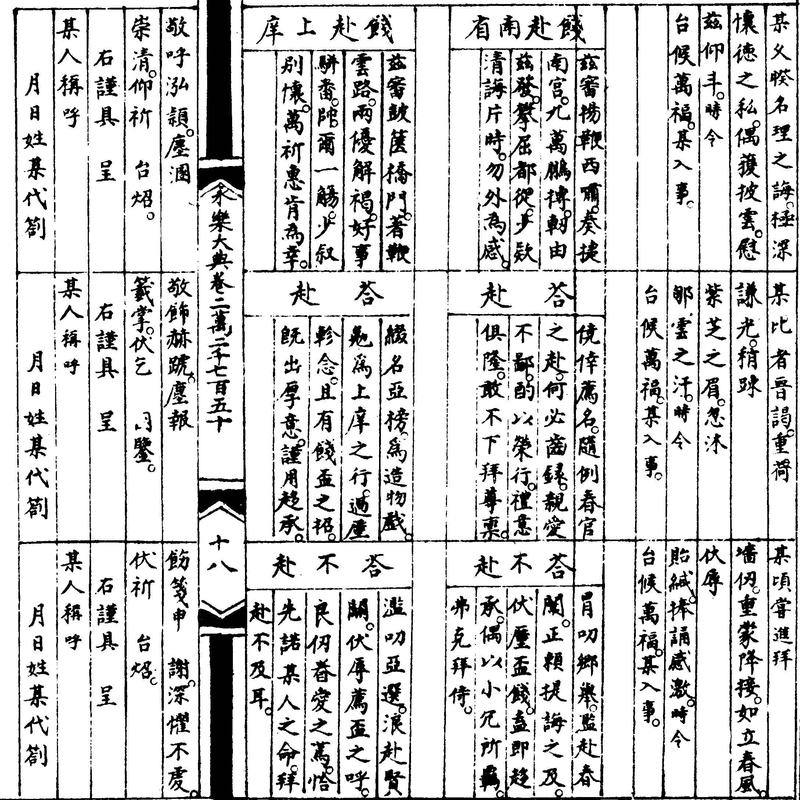 某父暌名理之誨。極深
懷德之私。偶獲披雲。慰
茲仰斗。時令
台候萬福。某入事。
餞赴南有
茲審揚鞭西嘯。奏捷
南宮。九萬鵬摶。軔由
茲發。攀屈都從。少款
清誨片時。勿外為感。
某比者晉謁。重荷
謙光。稍踈
紫芝之眉。忽沐
郇雲之汗。時令
台候萬福。某入事。
荅赴
僥倖薦名。隨例春官
之赴。何必齒録。親愛
不鄙。酌以榮行。禮意
俱隆。敢不下拜尊稟。
某頃嘗進拜
墻仞。重蒙降接。如立春風。
伏辱
貽緘。捧誦感激。時令
台候萬福。某入事。
荅不赴
冐叨鄉舉。濫赴春
闈。正賴提誨之及。
伏蒙盃餞。盍即趍
承。偶以小冗所羈。
弗克拜侍。
餞赴上庠
茲審鼓篋橋門。著鞭
雲路。兩優解褐。好事
駢臻。郎爾一觴。少叙
別懷。萬祈惠肯為幸。
荅赴
綴名亞榜。為造物戲。
勉為上庠之行。過塵
軫念。且有餞盃之招。
既出厚意。謹用趍承。
荅不赴
濫叨亞選。浪赴賢
關。伏辱薦盃之呼。
良仞眷愛之篤。恰
先諾某人之命。拜
赴不及耳。
永樂大典卷二萬二千七百五十
十八
敬呼泓頴。塵溷
崇清。仰祈 台炤。
右謹具 呈
某人稱呼
月日姓某代劄
敬飾赫蹏。塵報
籖掌。伏乞 冎鑒。
右謹具 呈
某人稱呼
月日姓某代劄
飭箋申 謝。深懼不虔。
伏祈 台炤。
右謹具 呈
某人稱呼
月日姓某代劄